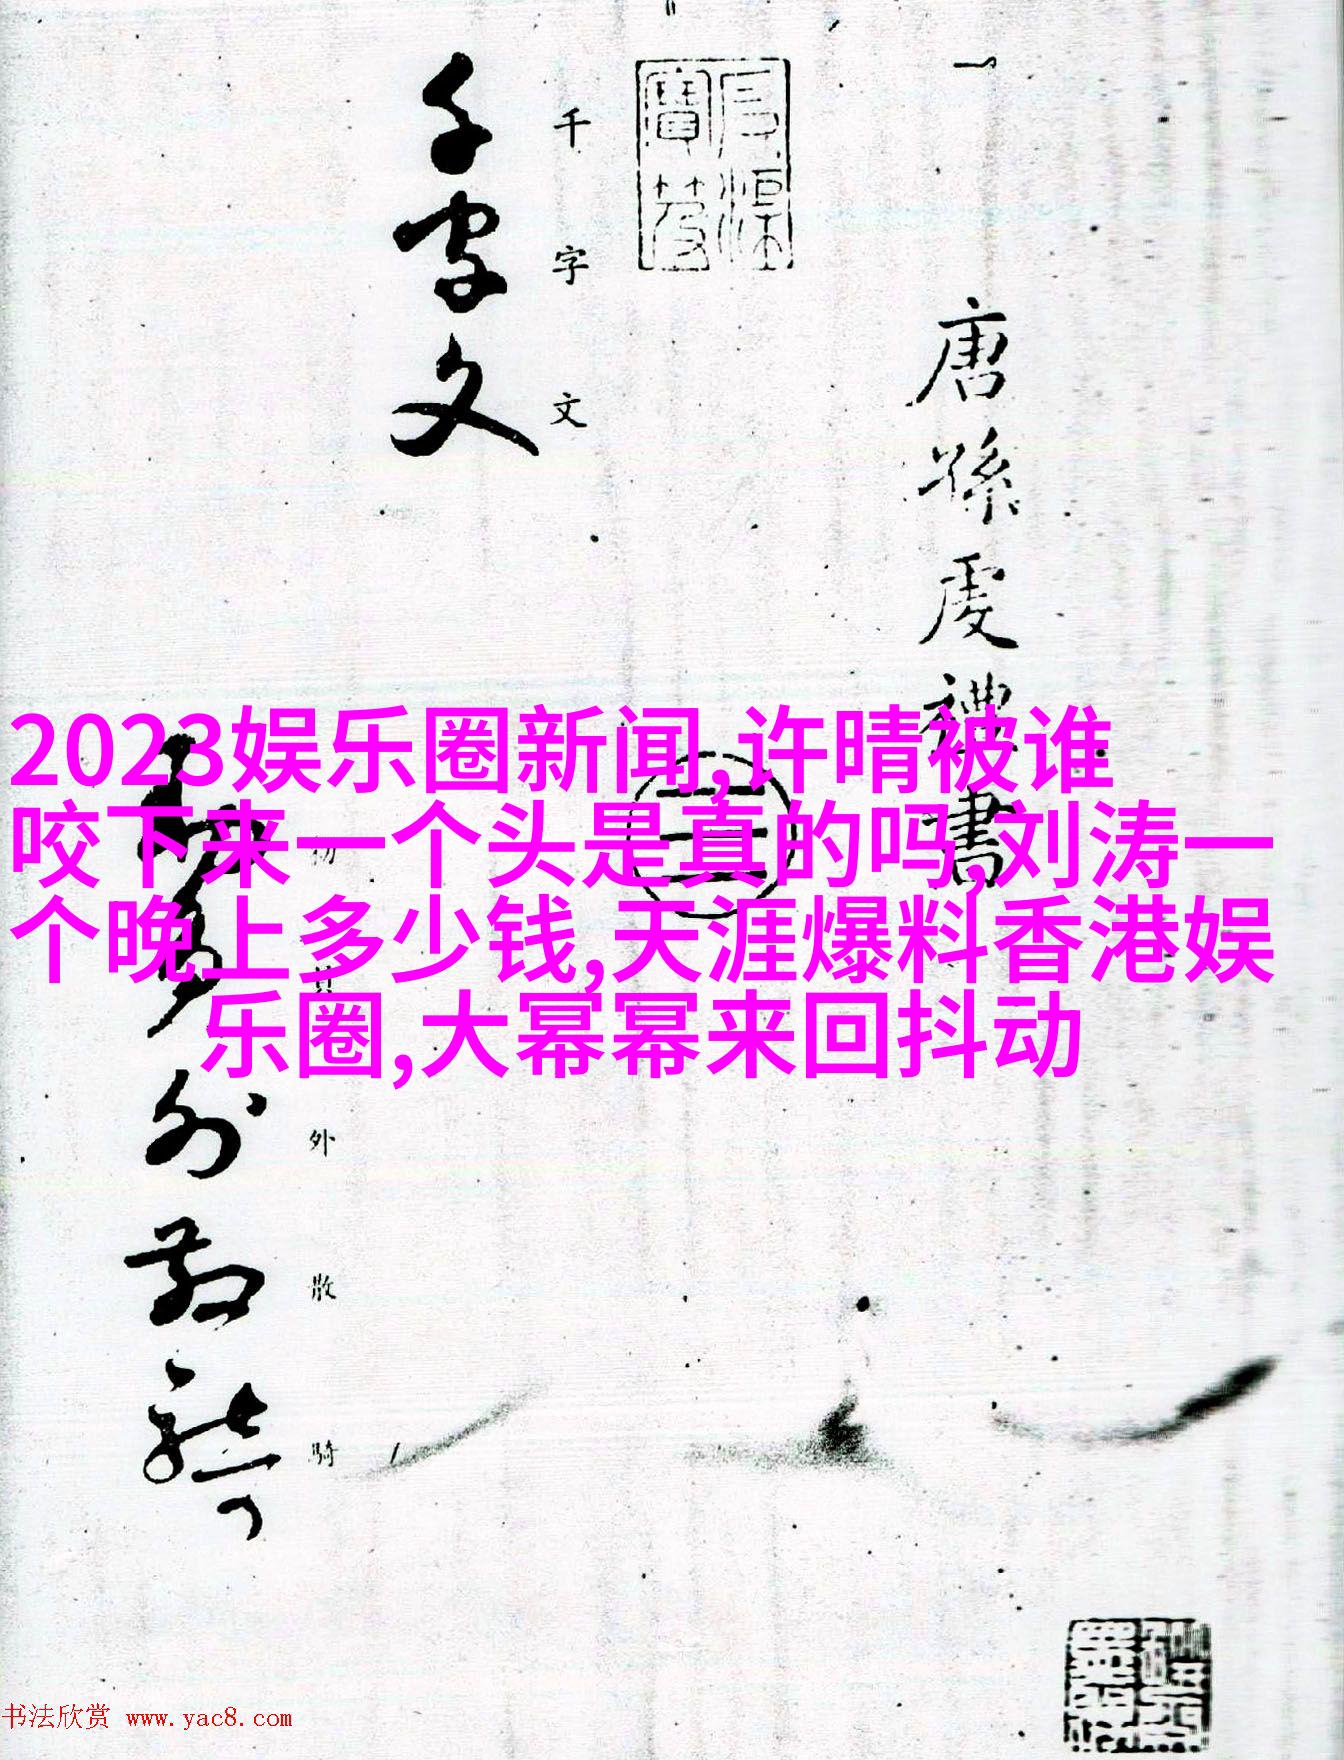 唐孫虔禮書
千字文
千字文
2023娱乐圈新闻,许晴被谁
咬下来一个头是真的吗,刘涛一
个晚上多少钱,天涯爆料香港娱
乐圈,大幂幂来回抖动
外散騎
外散騎
书法欣赏 www.yac8.com